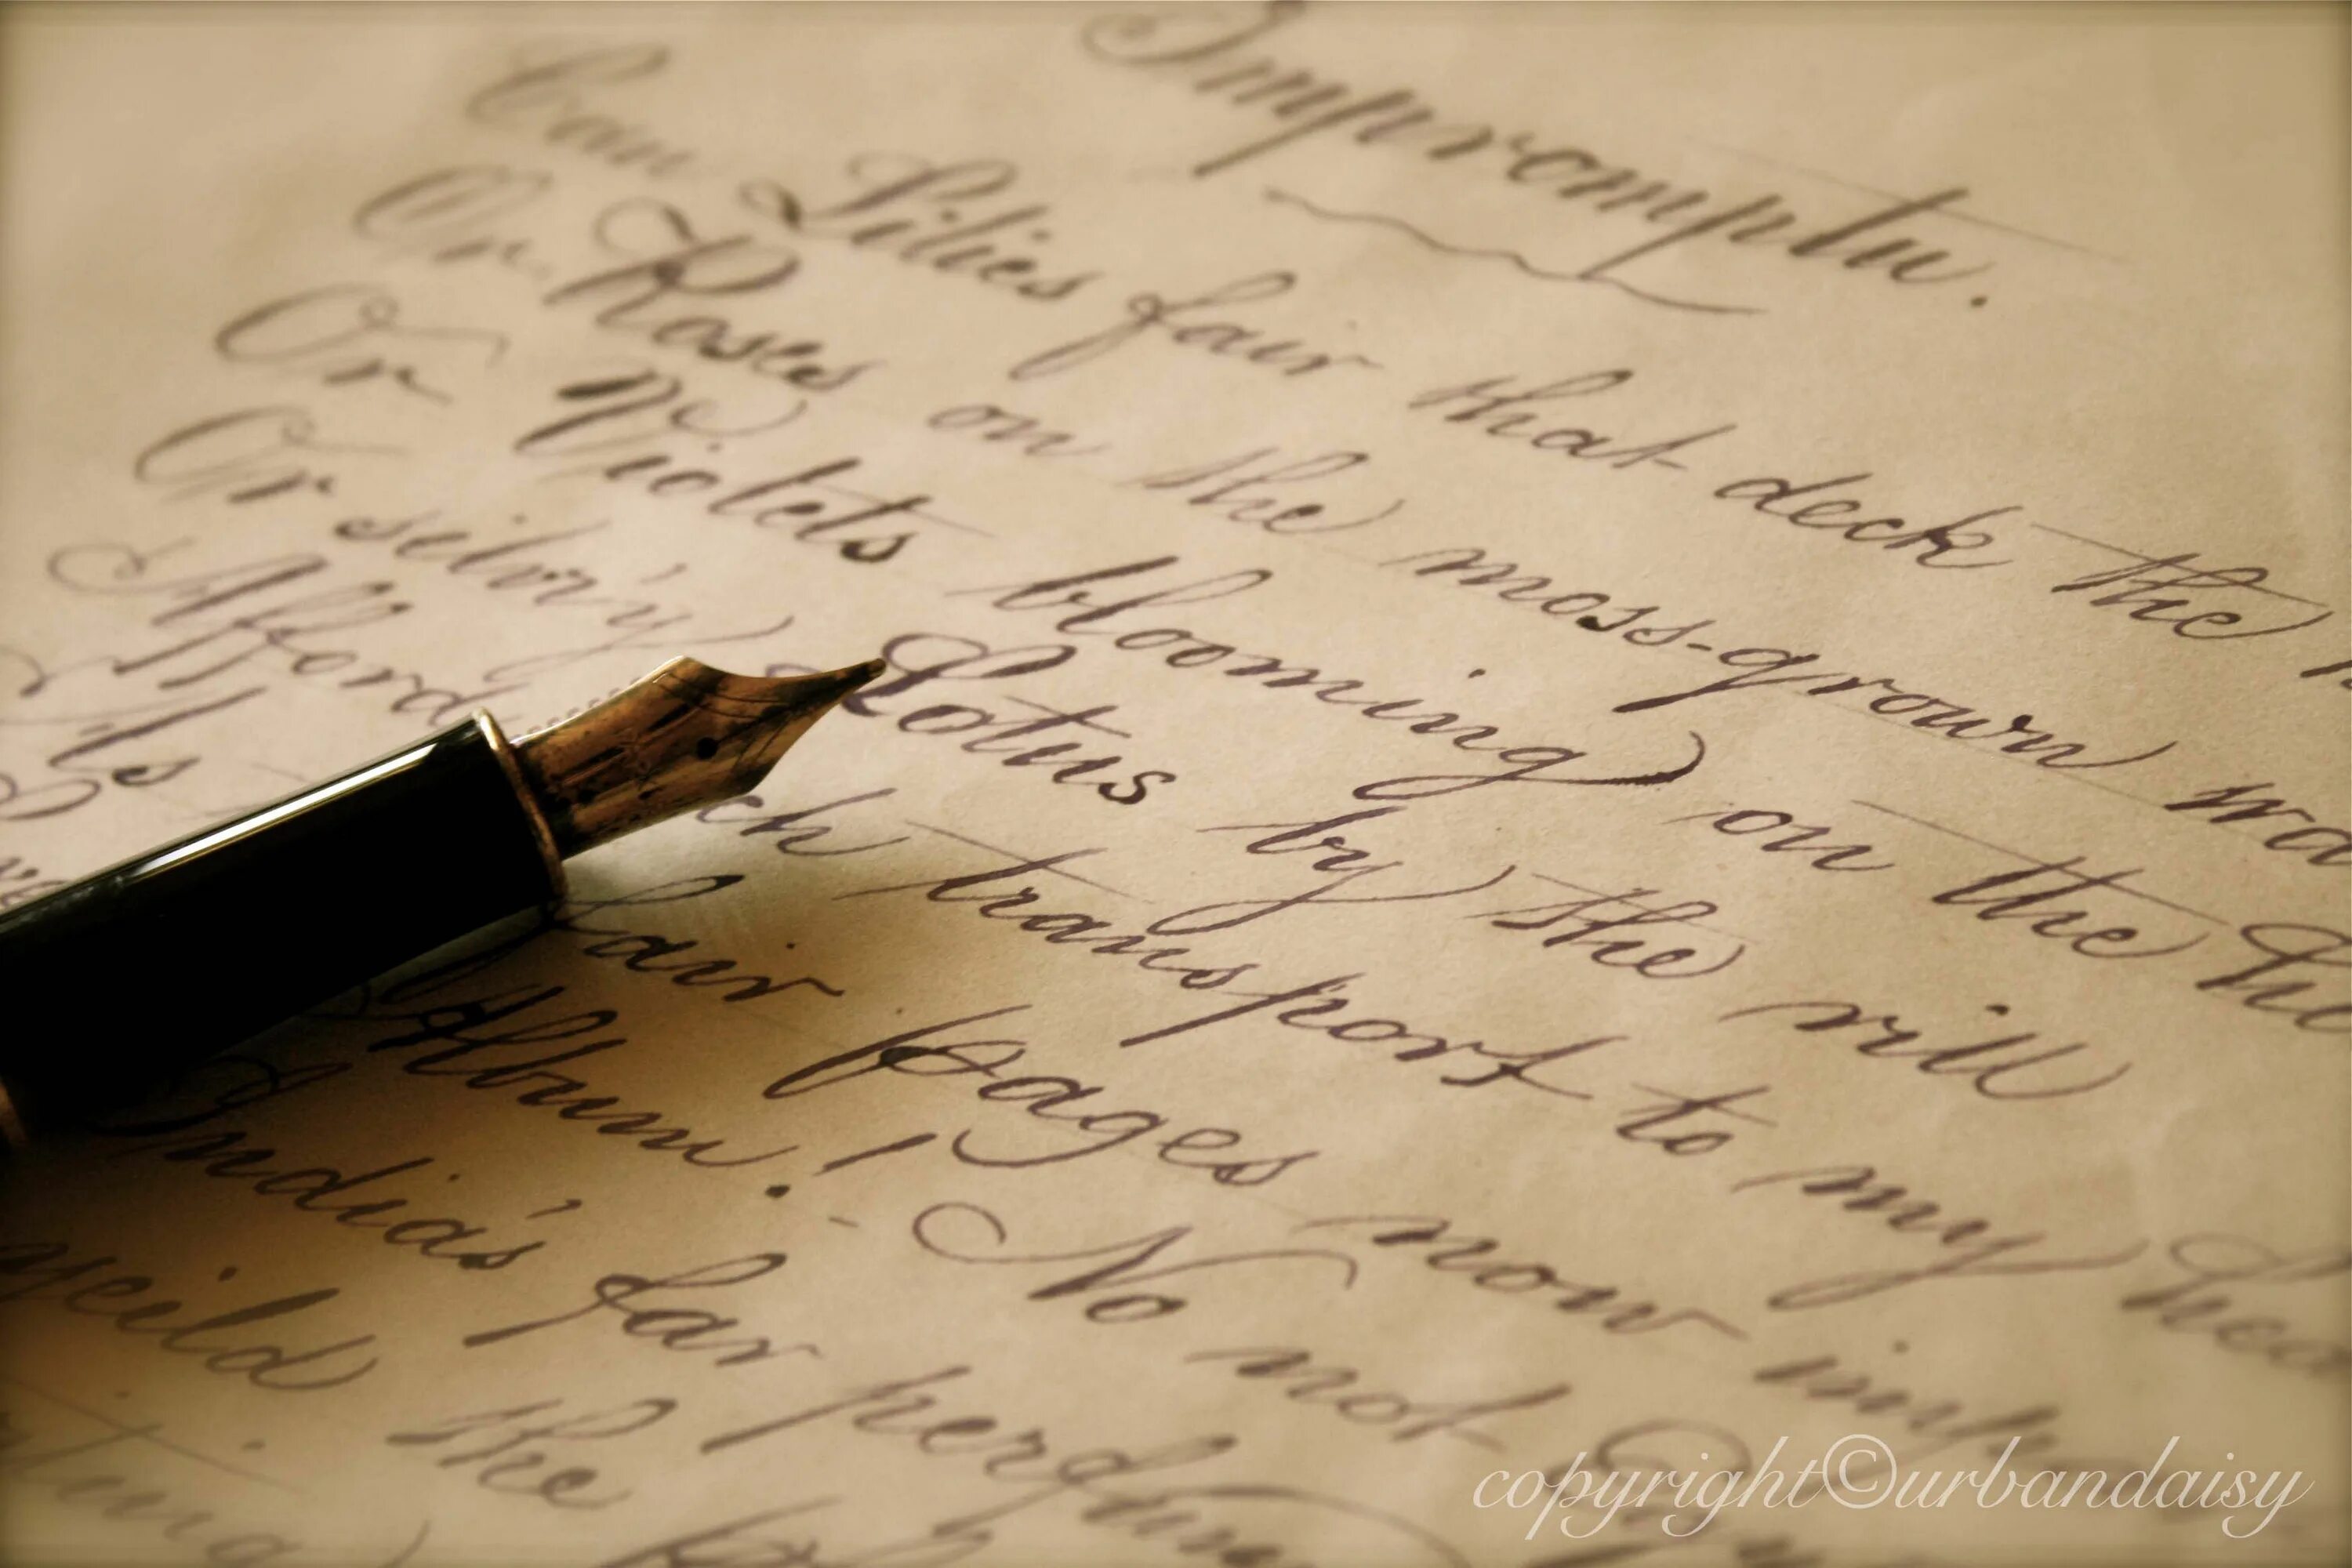 Impromptu.
Can Lilies fair that deck the
Or Roses on the moss-grown
Or Violets blooming on the
Or selv'ry Lotus by the rill
Afford transport to my
fair pages now
Album! No not
India's far
yeild the
copyright©urbandaisy